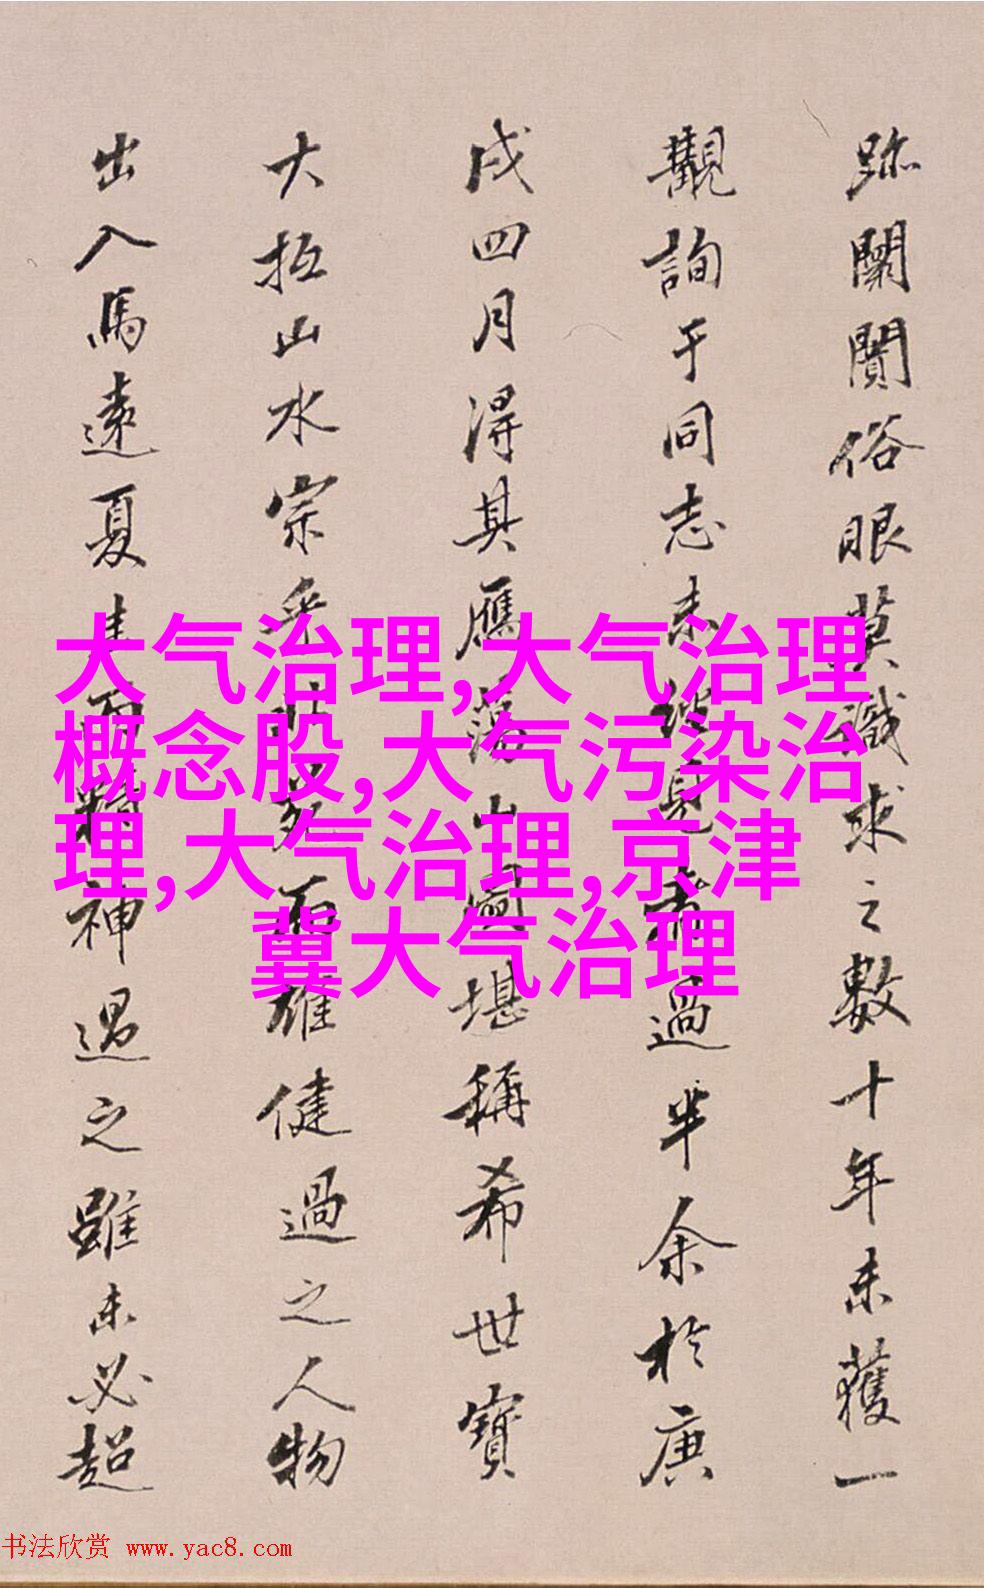 跡闤闠俗眼莫識求之數十年未獲一
觀詢于同志未彼見者過半余於庚
戌四月得其雁蕩山圖堪稱希世寶
大抵山水宗乎荊關而雄健過之人物
出入馬遠夏圭而精神過之雖未必超
大气治理,大气治理
概念股,大气污染治
理,大气治理,京津
冀大气治理
书法欣赏 www.yac8.com